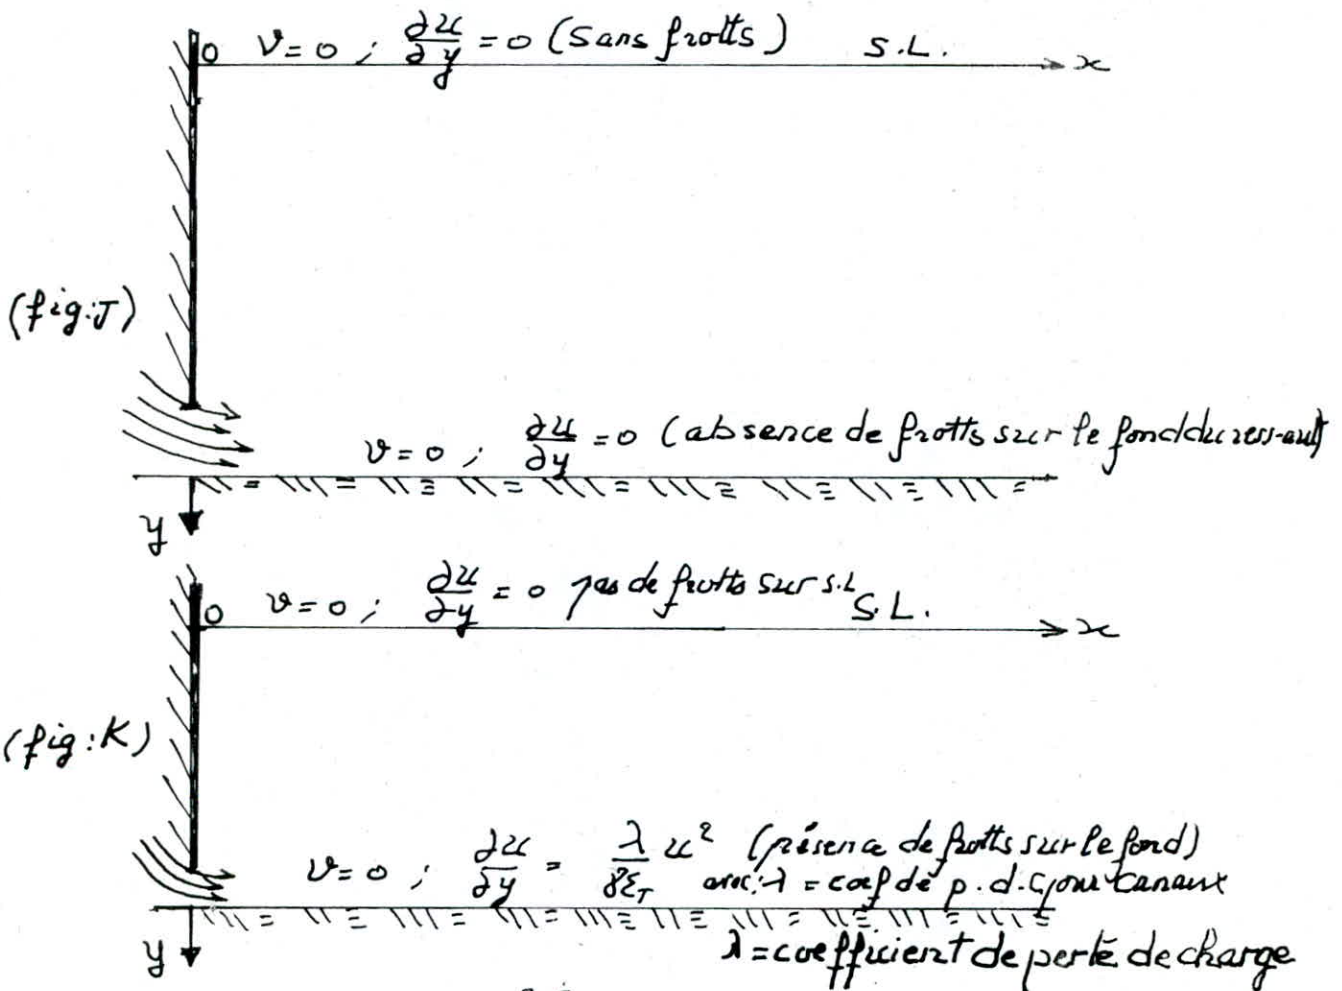 0 V=0 ; ∂u/∂y = 0 (Sans frotts) S.L. x
(fig:J)
v=0 ; ∂u/∂y = 0 (absence de frotts sur le fond du ress-aut)
y
0 v=0 ; ∂u/∂y = 0 pas de frotts sur S.L S.L. x
(fig:K)
v=0 ; ∂u/∂y = λ/8ε_T u² (présence de frotts sur le fond)
avec: λ = coef de p.d.c pour canaux
y λ = coefficient de perte de charge